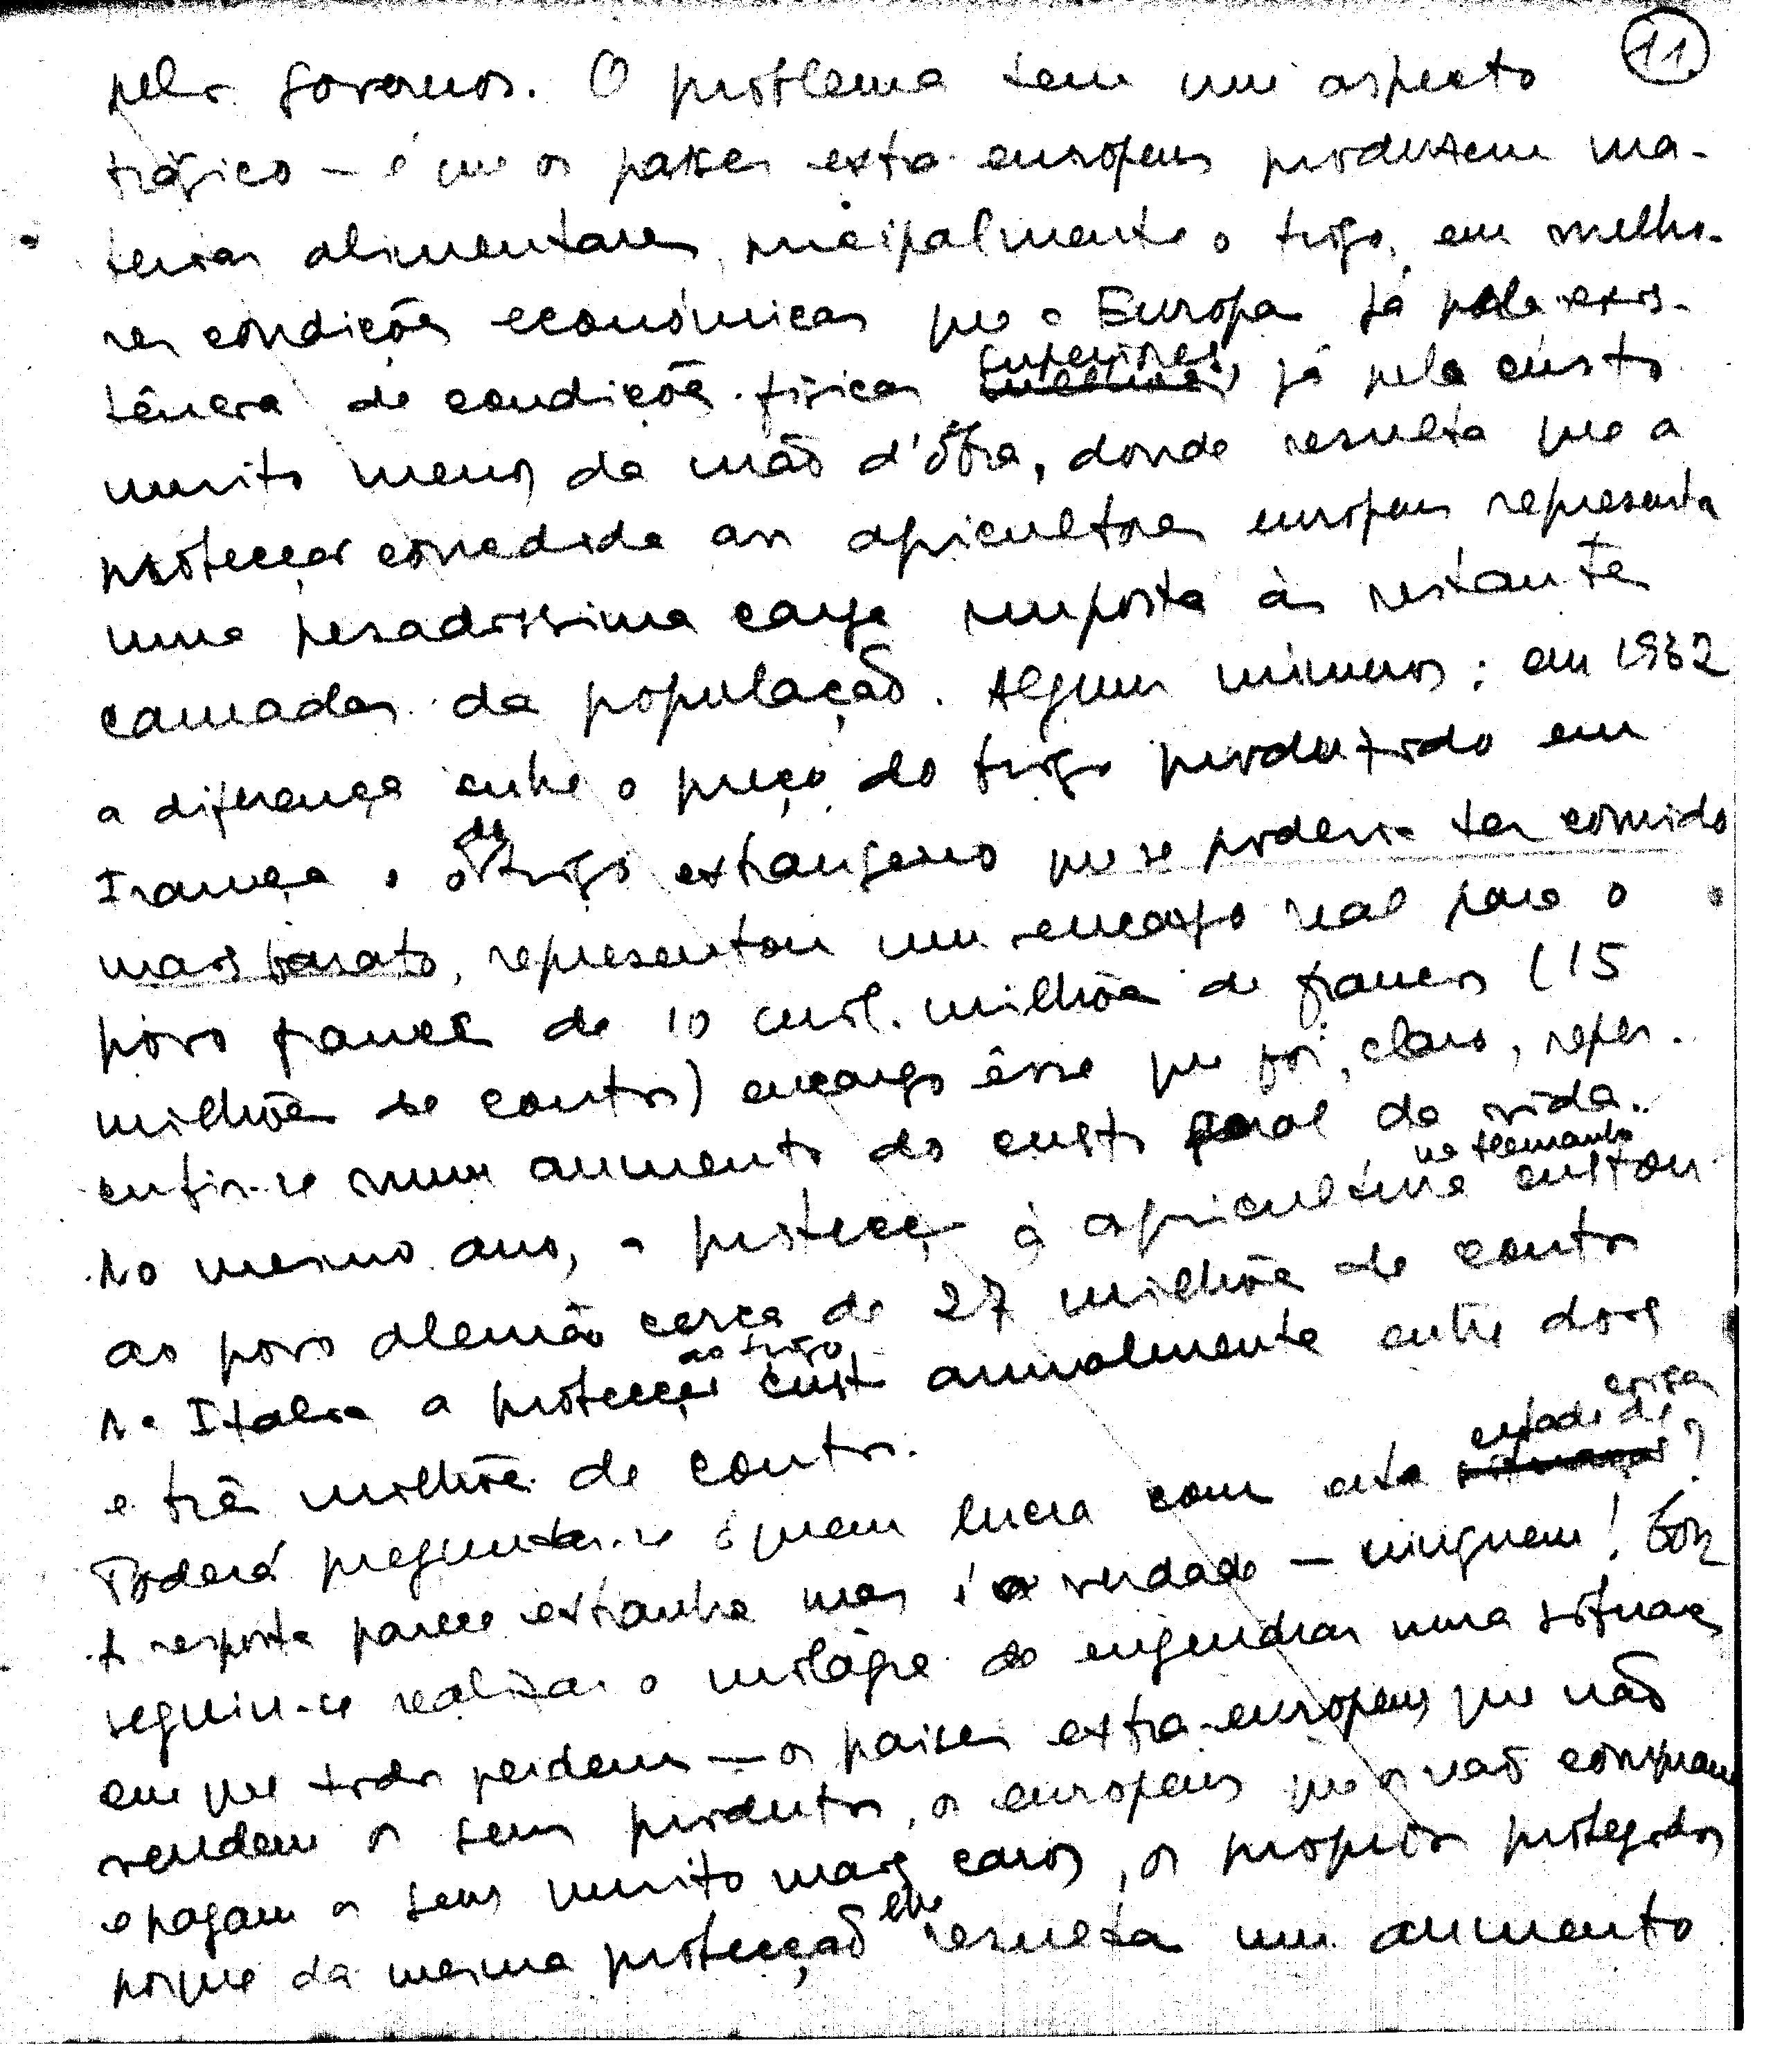 11
pelos governos. O problema tem um aspecto
trágico - é que os paises extra-europeus produzem ma-
terias alimentares, principalmente o trigo, em melho-
res condições económicas que a Europa já pela exis-
tência de condições fisicas superiores, já pelo custo
muito menor da mão d'obra, donde resulta que a
protecção concedida aos agricultores europeus representa
uma pesadissima carga imposta às restantes
camadas da população. Alguns números: em 1932
a diferença entre o preço do trigo produzido em
França e o do trigo extrangeiro que se poderia ter comido
mais barato, representou um encargo real para o
povo francês de 10 mil milhões de francos (15
milhões de contos) encargo êsse que foi, claro, reper-
cutir-se num aumento do custo geral da vida.
No mesmo ano, a protecção à agricultura na Alemanha custou
ao povo alemão cerca de 27 milhões de contos
Na Italia a protecção ao trigo custa anualmente entre dois
e três milhões de contos.
Poderá preguntar-se ¿quem lucra com este estado de coisas?
A resposta parece extranha mas é a verdade - ninguem! Con
seguiu-se realizar o milagre de engendrar uma situação
em que todos perdem - os paises extra-europeus que não
vendem os seus produtos, os europeus que os não compram
e pagam os seus muito mais caros, os proprios protegidos
porque da mesma protecção lhe resulta um aumento